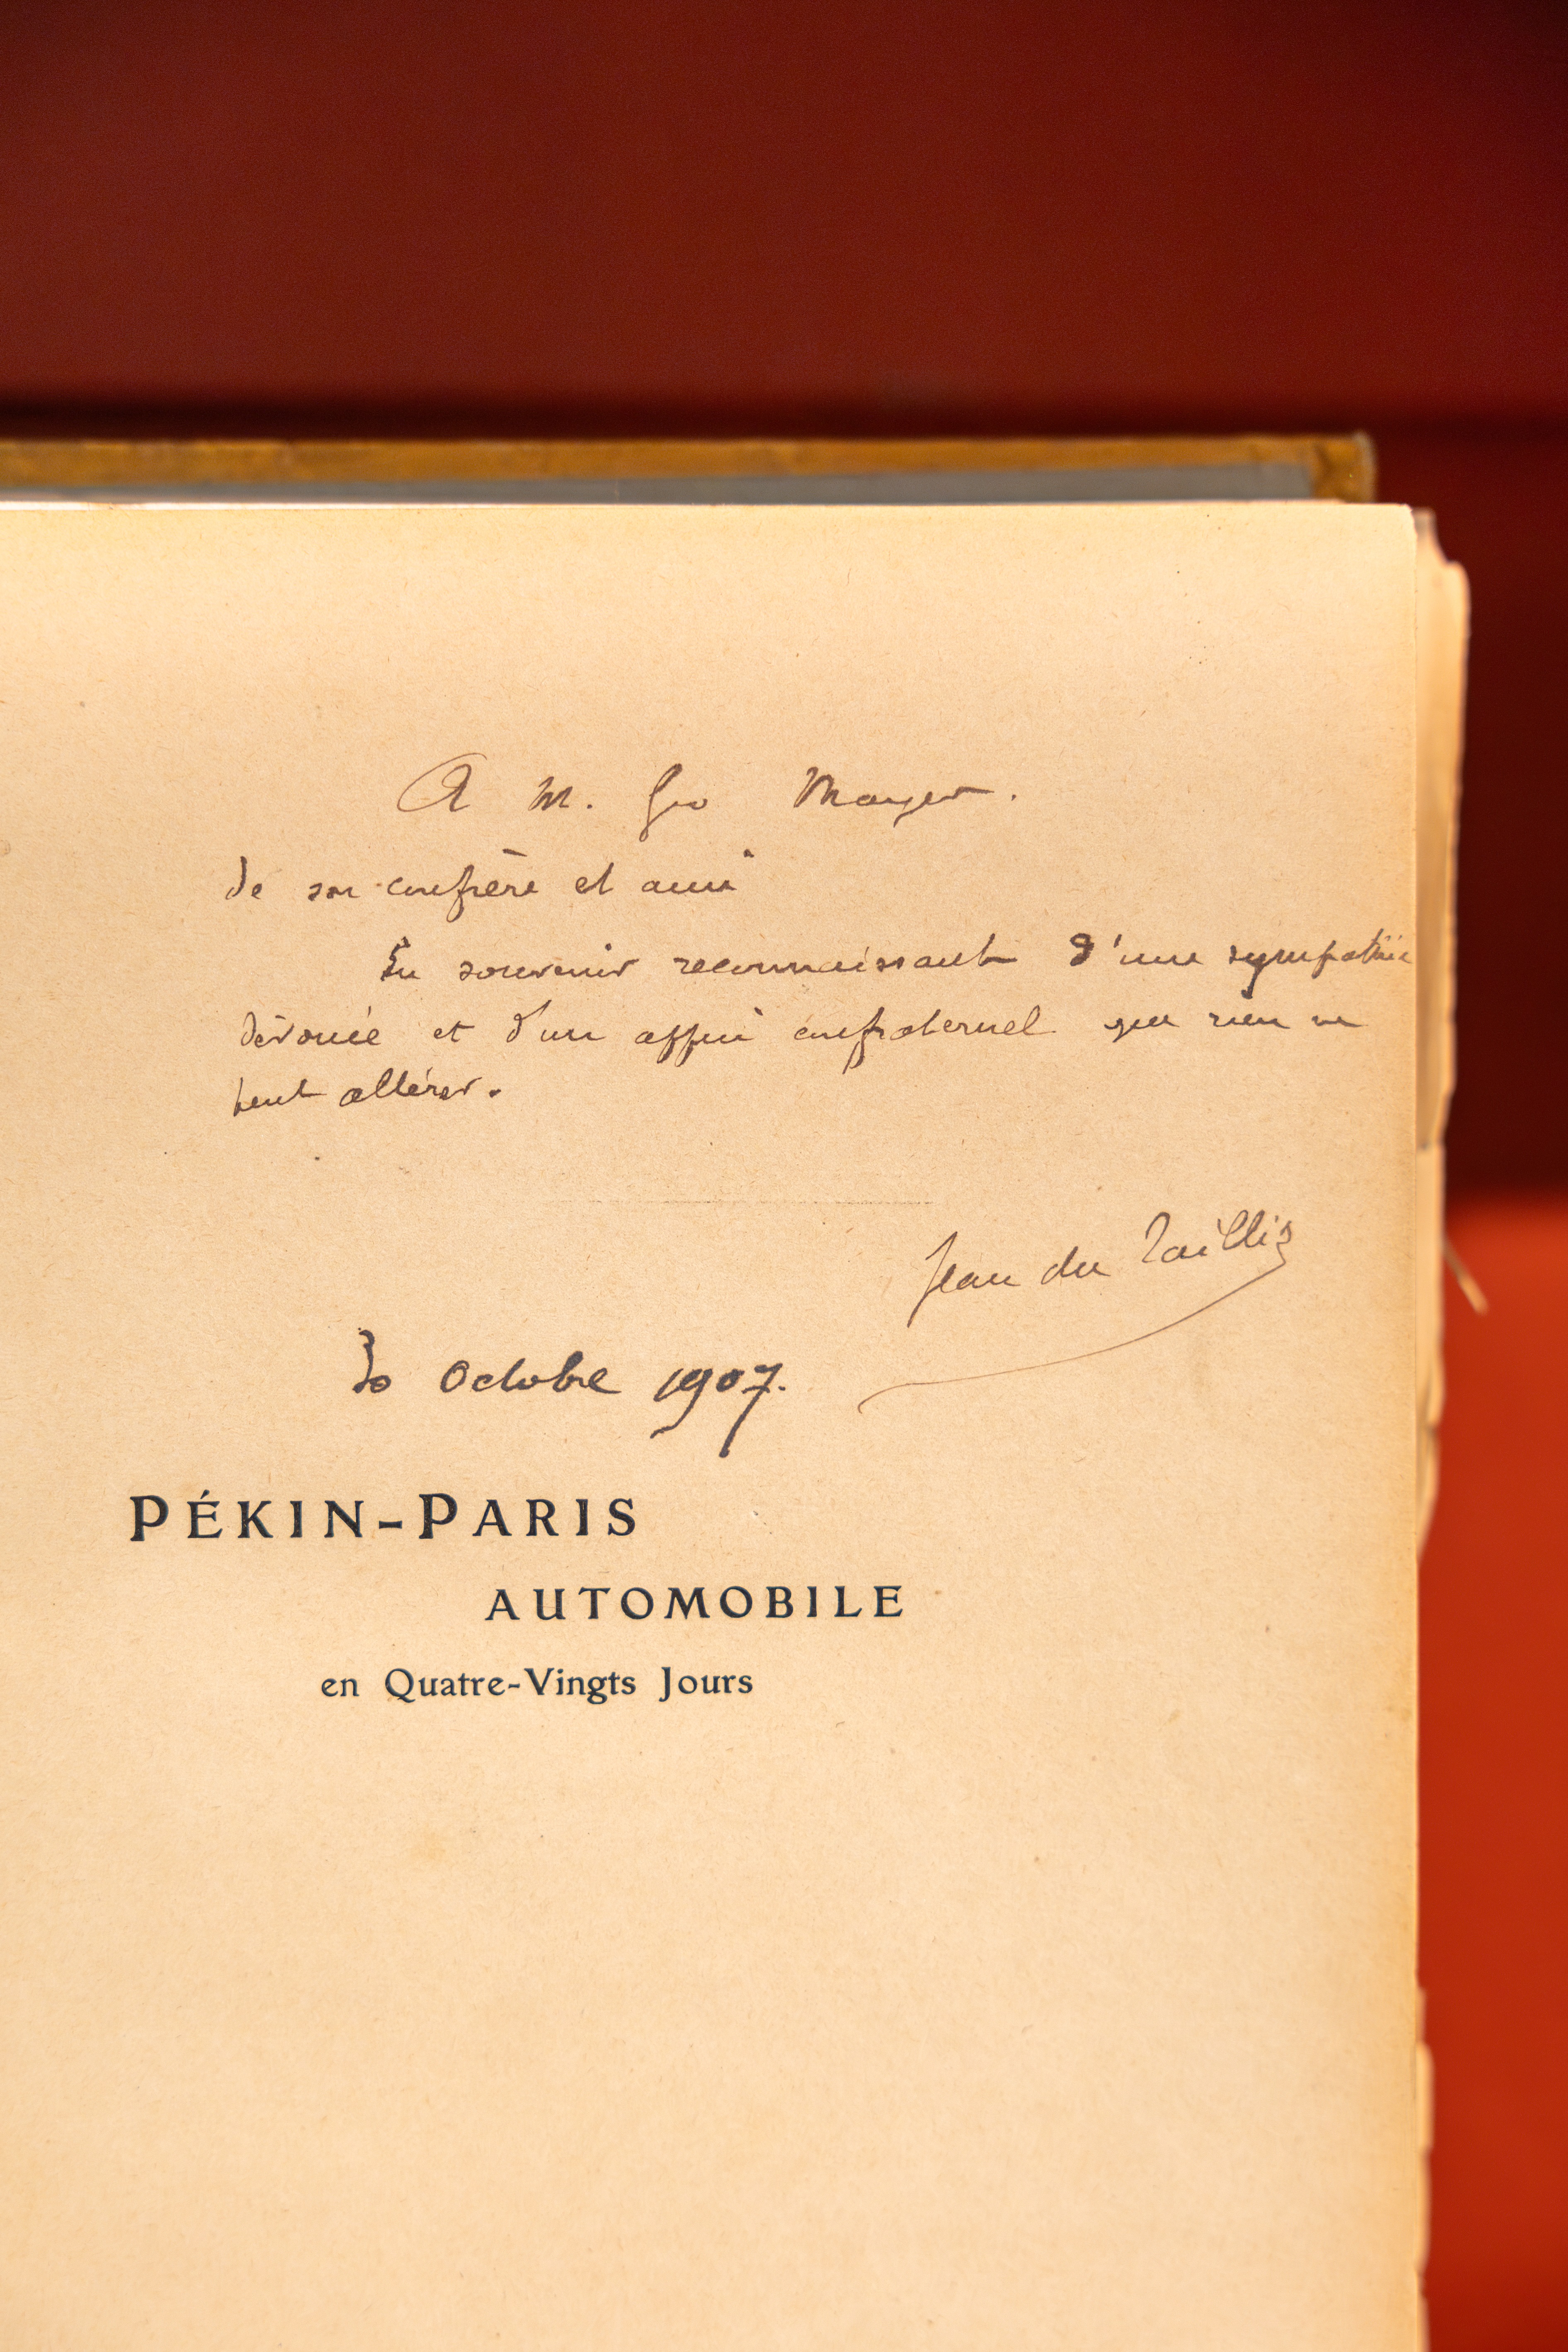 A M. Geo Mayer.
de son confrère et ami
En souvenir reconnaissant d'une sympathie
dévouée et d'un appui confraternel que rien ne
peut altérer.
Jean du Taillis
30 Octobre 1907.
PÉKIN-PARIS
AUTOMOBILE
en Quatre-Vingts Jours